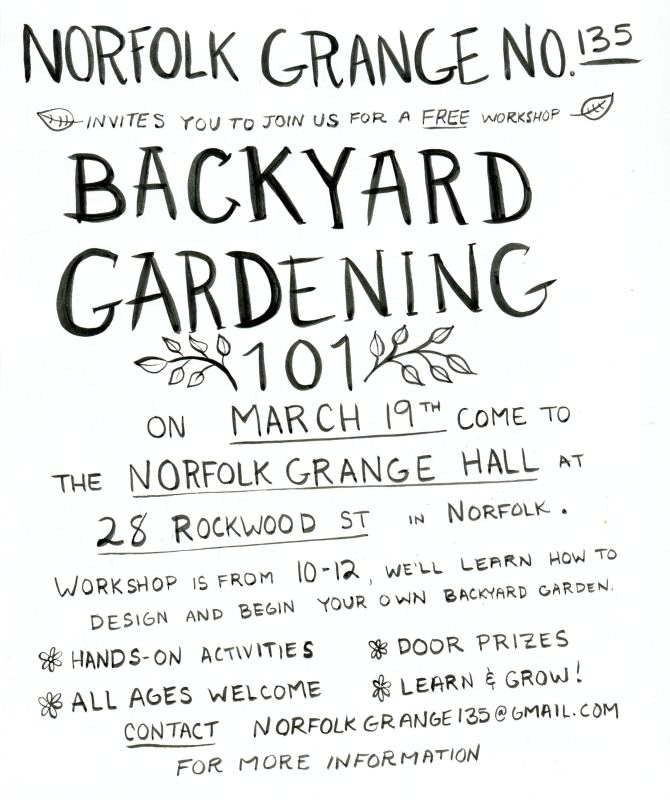 NORFOLK GRANGE NO. 135
INVITES YOU TO JOIN US FOR A FREE WORKSHOP
BACKYARD
GARDENING
101
ON MARCH 19TH COME TO
THE NORFOLK GRANGE HALL AT
28 ROCKWOOD ST IN NORFOLK.
WORKSHOP IS FROM 10-12, WE'LL LEARN HOW TO
DESIGN AND BEGIN YOUR OWN BACKYARD GARDEN.
HANDS-ON ACTIVITIES
DOOR PRIZES
ALL AGES WELCOME
LEARN & GROW!
CONTACT NORFOLKGRANGE135@GMAIL.COM
FOR MORE INFORMATION